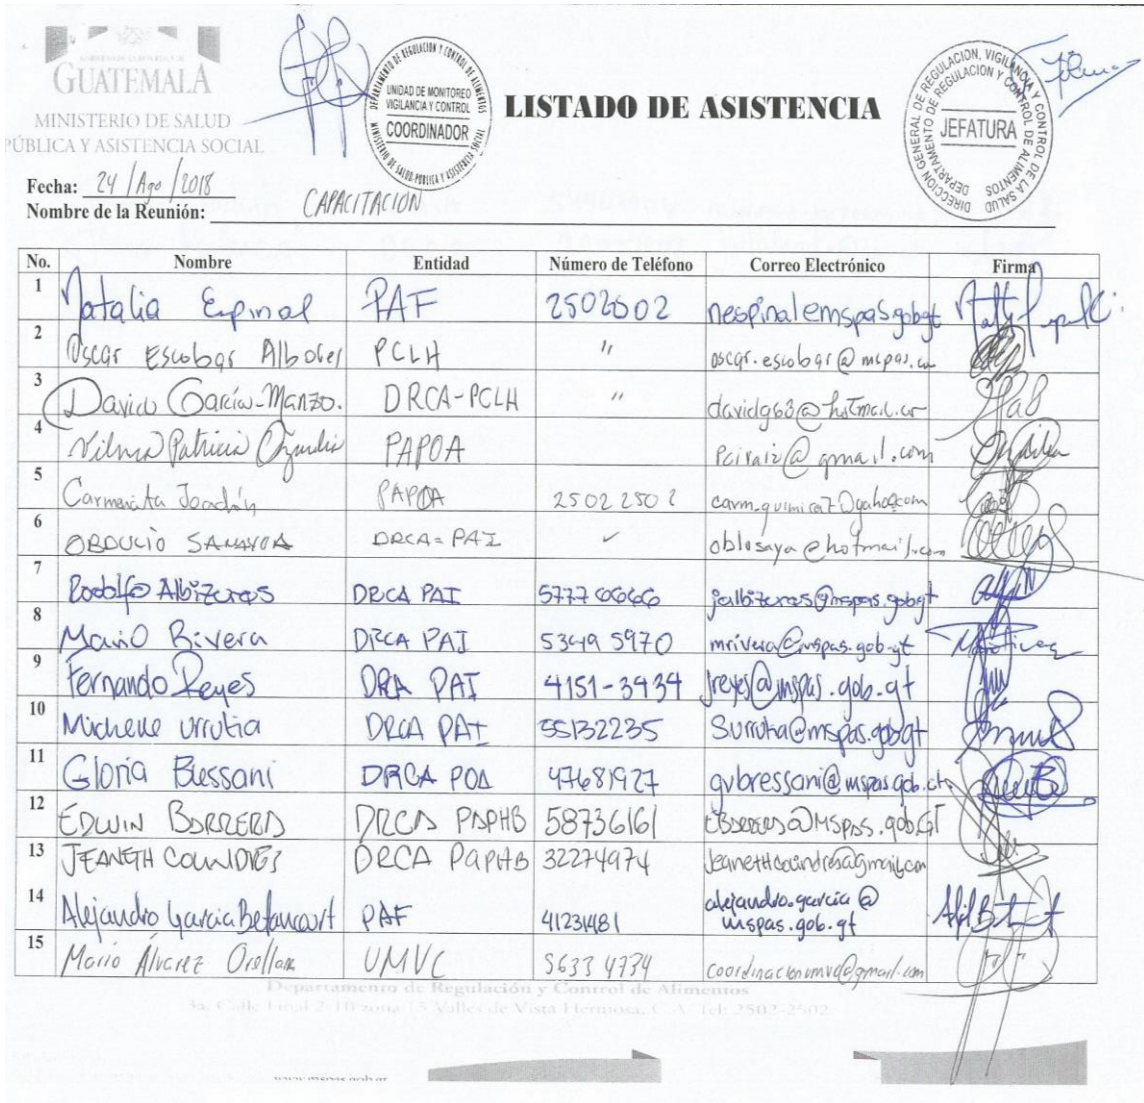 GUATEMALA
MINISTERIO DE SALUD
PÚBLICA Y ASISTENCIA SOCIAL
DEPARTAMENTO DE REGULACION Y CONTROL DE ALIMENTOS
UNIDAD DE MONITOREO
VIGILANCIA Y CONTROL
COORDINADOR
MINISTERIO DE SALUD PUBLICA Y ASISTENCIA SOCIAL
LISTADO DE ASISTENCIA
DIRECCION GENERAL DE REGULACION, VIGILANCIA Y CONTROL DE LA SALUD
DEPARTAMENTO DE REGULACION Y CONTROL DE ALIMENTOS
JEFATURA
Fecha: 24/Ago/2018
Nombre de la Reunión: CAPACITACIÓN
No. Nombre Entidad Número de Teléfono Correo Electrónico Firma
1 Natalia Espinal PAF 2502502
2 Oscar Escobar PCLH "
3 David García-Manzo. DRCA-PCLH " davidg63@hotmail.co
4 Vilma Patricia PAPOA @gmail.com
5 PAPOA 2502 2502
6 OBDULIO SANAYOA DRCA-PAI ✓ oblosaya@hotmail.com
7 Rodolfo Albizures DRCA PAI jalbizures@mspas.gob.gt
8 Mario Rivera DRCA PAI 5349 5970 mrivera@mspas.gob.gt
9 Fernando Reyes DRCA PAI 4151-3434 jreyes@mspas.gob.gt
10 Michelle Urrutia DRCA PAI 55132235 Surrutia@mspas.gob.gt
11 Gloria Bressani DRCA POA 47681927 gvbressani@mspas.gob.gt
12 EDWIN BARRERA DRCA PAPHB 58736161 EBarrera@Mspas.gob.GT
13 JEANETH DRCA PAPHB 32274974
14 Alejandro Garcia Betancourt PAF 41231481 alejandro.garcia@
mspas.gob.gt
15 Mario Álvarez Orellana UMVC 5633 4734 coordinacionumvc@gmail.com
Departamento de Regulación y Control de Alimentos
3a. Calle Final 2-10 zona 15 Valles de Vista Hermosa, C.A. Tel: 2502-2502
www.mspas.gob.gt